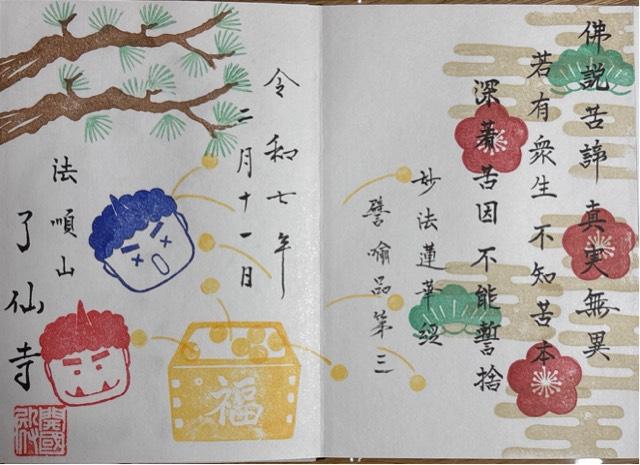 佛説苦諦真実無異
若有衆生不知苦本
深著苦因不能暫捨
妙法蓮華経
譬喩品第三
令和七年
二月十一日
法順山
了仙寺
福
開國